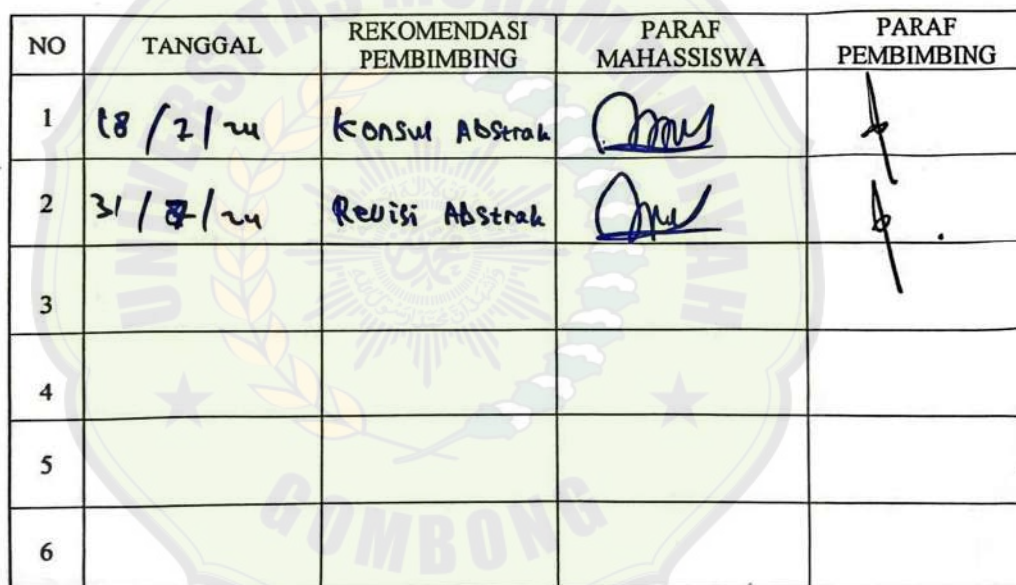 NO TANGGAL REKOMENDASI PEMBIMBING PARAF MAHASSISWA PARAF PEMBIMBING
1 18 / 7 / 24 Konsul Abstrak
2 31 / / 24 Revisi Abstrak
3
4
5
6
UNIVERSITAS MUHAMMADIYAH
GOMBONG